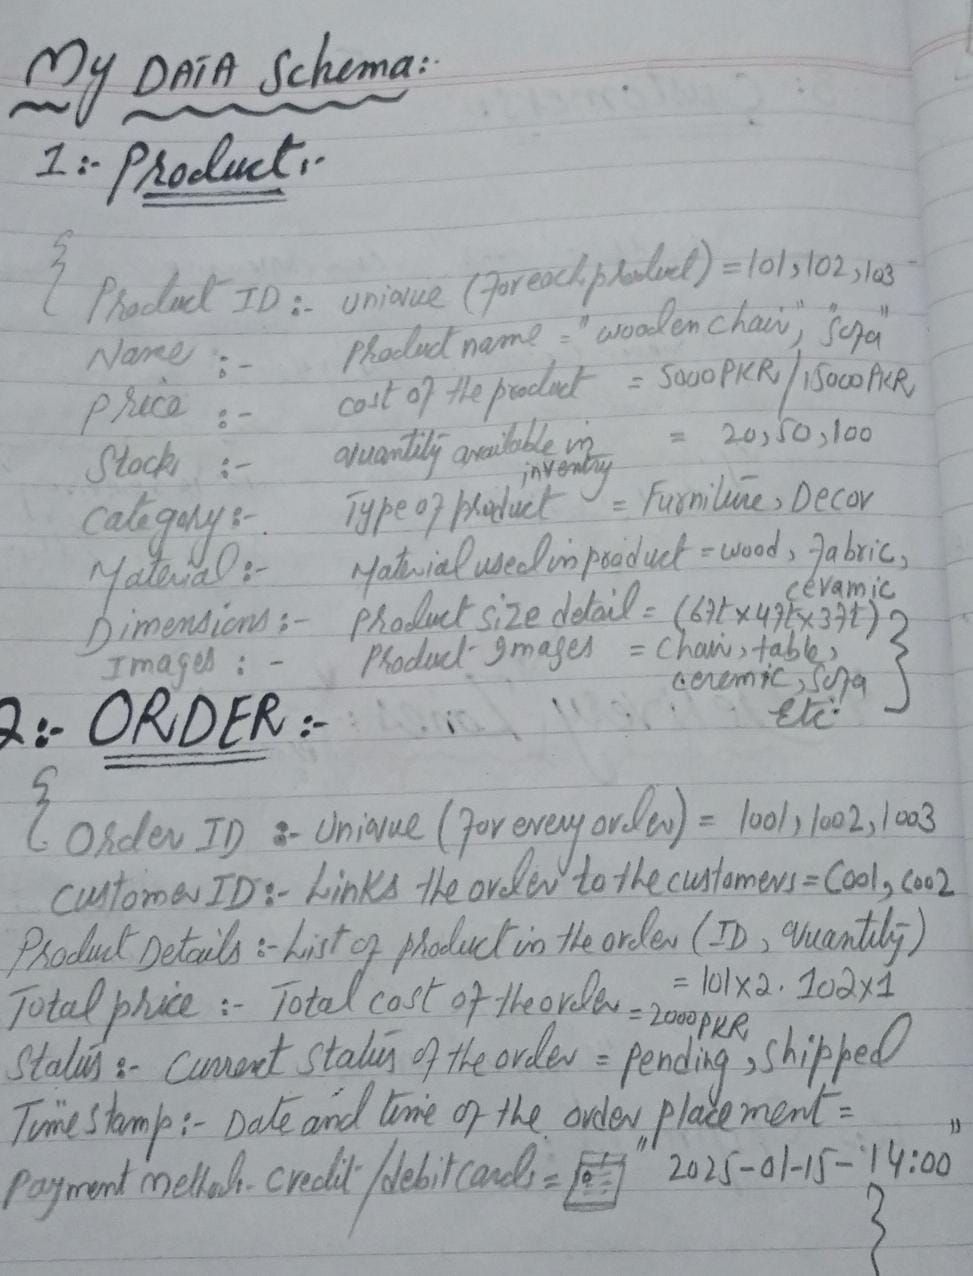 My DATA Schema:-
1:- Product:-
{
Product ID :- uniqiue (for each product) = 101,102,103
Name :- Product name = "wooden chair", "Sofa"
Price :- cost of the product = 5000 PKR/15000 PKR
Stock :- quantity available in = 20,50,100
inventry
Category:- Type of product = Furniture, Decor
Material:- Material used in product = wood, fabric,
ceramic
Dimensions:- Product size detail = (6ft x 4ft x 3ft)
Images :- Product Images = Chair, table,
ceremic, Sofa
Etc. }
2:- ORDER:-
{
Order ID :- Uniqiue (for every order) = 1001,1002,1003
Customer ID:- Links the order to the customers = C001, C002
Product Details :- List of product in the order (ID, Quantity)
= 101x2. 102x1
Total price :- Total cost of the order = 2000 PKR
Status :- Current Status of the order = pending, shipped
Time Stamp:- Date and time of the order placement =
"2025-01-15-14:00"
Payment method- credit/debit cards =
}